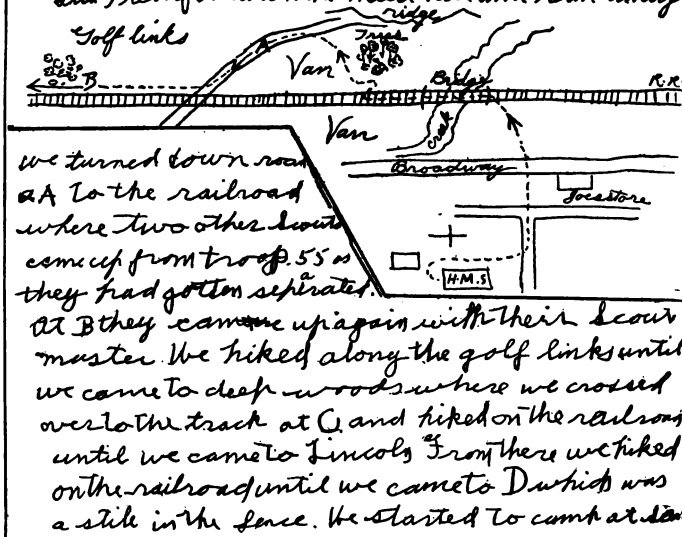 ridge
Golf links
Trees
A
Van
B
Bridge
R.R.
Van
creek
Broadway
Joesstore
H.M.S
we turned down road
at A to the railroad
where two other Scouts
come up from troop. 55 as
they had gotten seperated.
At B they came up again with their Scout
master. We hiked along the golf links until
we came to deep woods where we crossed
over to the track at C, and hiked on the railroad
until we came to Lincoln. From there we hiked
on the railroad until we came to D which was
a stile in the fence. We started to camp at